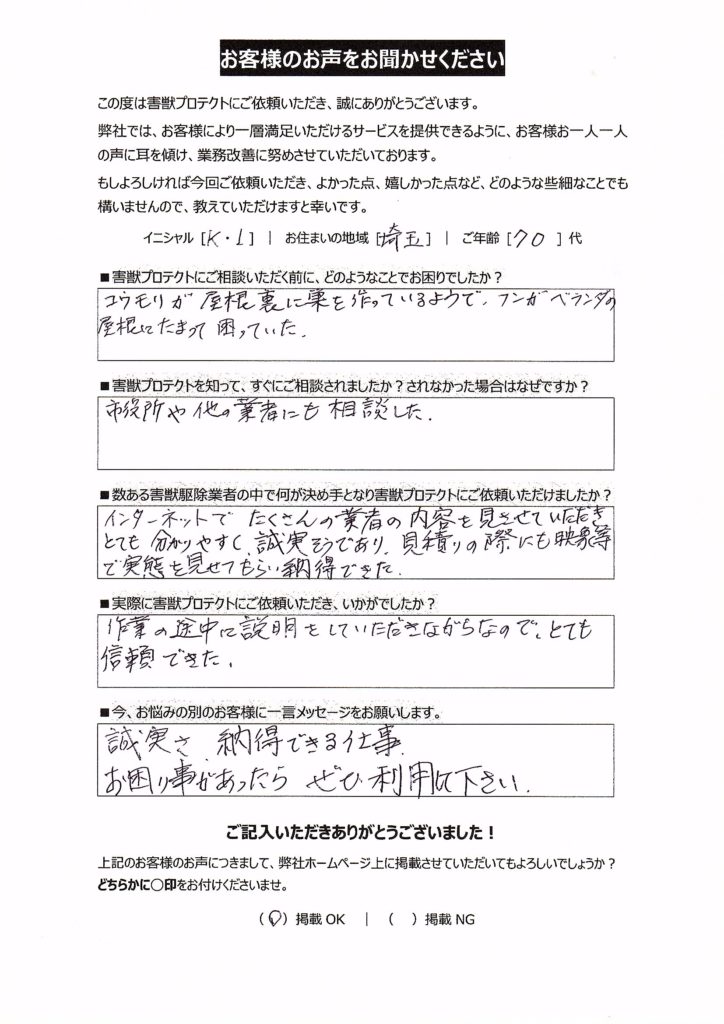 お客様のお声をお聞かせください
この度は害獣プロテクトにご依頼いただき、誠にありがとうございます。
弊社では、お客様により一層満足いただけるサービスを提供できるように、お客様お一人一人
の声に耳を傾け、業務改善に努めさせていただいております。
もしよろしければ今回ご依頼いただき、よかった点、嬉しかった点など、どのような些細なことでも
構いませんので、教えていただけますと幸いです。
イニシャル [K・I] | お住まいの地域 [埼玉] | ご年齢 [70] 代
■害獣プロテクトにご相談いただく前に、どのようなことでお困りでしたか？
コウモリが屋根裏に巣を作っているようで、フンがベランダの
屋根にたまって困っていた。
■害獣プロテクトを知って、すぐにご相談されましたか？されなかった場合はなぜですか？
市役所や他の業者にも相談した。
■数ある害獣駆除業者の中で何が決め手となり害獣プロテクトにご依頼いただけましたか？
インターネットでたくさんの業者の内容を見させていただき
とても分かりやすく、誠実そうであり、見積りの際にも映象等
で実態を見せてもらい納得できた。
■実際に害獣プロテクトにご依頼いただき、いかがでしたか？
作業の途中に説明をしていただきながらなので、とても
信頼できた。
■今、お悩みの別のお客様に一言メッセージをお願いします。
誠実さ、納得できる仕事、
お困り事があったらぜひ利用して下さい。
ご記入いただきありがとうございました！
上記のお客様のお声につきまして、弊社ホームページ上に掲載させていただいてもよろしいでしょうか？
どちらかに〇印をお付けくださいませ。
（〇）掲載 OK | （ ）掲載 NG